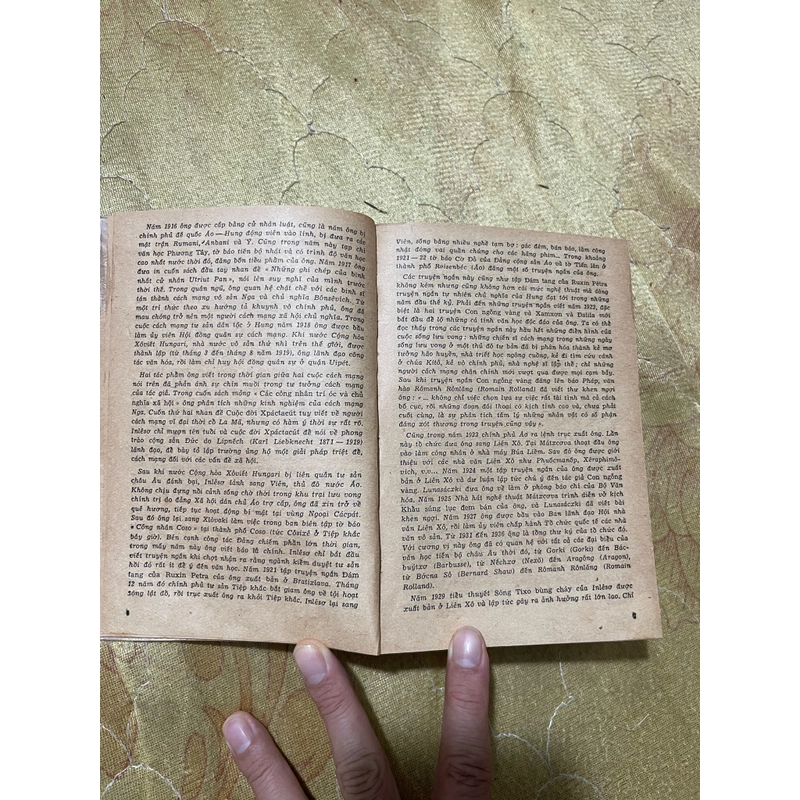 Năm 1916 ông được cấp bằng cử nhân luật, cũng là năm ông bị
chính phủ đế quốc Áo — Hung động viên vào lính, bị đưa ra các
mặt trận Rumani, Anbani và Ý. Cũng trong năm này tạp chí
văn học Phương Tây, tờ báo tiến bộ nhất và có trình độ văn học
cao nhất nước thời đó, đăng bốn tiểu phẩm của ông. Năm 1917 ông
đưa in cuốn sách đầu tay nhan đề « Những ghi chép của binh
nhất cử nhân Utriut Pan », nói lên suy nghĩ của mình trước
thời thế. Trong quân ngũ, ông quan hệ chặt chẽ với các binh sĩ
tán thành cách mạng vô sản Nga và chủ nghĩa Bônsêvích. Từ
một trí thức theo xu hướng tả khuynh vô chính phủ, ông đã
mau chóng trở nên một người cách mạng xã hội chủ nghĩa. Trong
cuộc cách mạng tư sản dân tộc ở Hung năm 1918 ông được bầu
làm ủy viên Hội đồng quân sự cách mạng. Khi nước Cộng hòa
Xôviết Hungari, nhà nước vô sản thứ nhì trên thế giới, được
thành lập (từ tháng 3 đến tháng 8 năm 1919), ông lãnh đạo công
tác văn hóa, rồi làm chỉ huy hội đồng quân sự ở quận Uipét.
Hai tác phẩm ông viết trong thời gian giữa hai cuộc cách mạng
nói trên đã phản ánh sự chín muồi trong tư tưởng cách mạng
của tác giả. Trong cuốn sách mỏng « Các công nhân trí óc và chủ
nghĩa xã hội » ông phân tích những kinh nghiệm của cách mạng
Nga. Cuốn thứ hai nhan đề Cuộc đời Xpáctacút tuy viết về người
cách mạng vĩ đại thời cổ La Mã, nhưng có hàm ý thời sự rất rõ.
Inlêsơ chỉ mượn tên tuổi và cuộc đời Xpáctacút để nói về phong
trào cộng sản Đức do Lipnếch (Karl Liebknecht 1871 — 1919)
lãnh đạo, để bày tỏ lập trường ủng hộ một giải pháp triệt để,
cách mạng đối với các vấn đề xã hội.
Sau khi nước Cộng hòa Xôviết Hungari bị liên quân tư sản
châu Âu đánh bại, Inlêsơ lánh sang Viên, thủ đô nước Áo.
Không chịu đựng nổi cảnh sống chờ thời trong khu trại lưu vong
chính trị do đảng Xã hội dân chủ Áo trợ cấp, ông đã xin trở về
quê hương, tiếp tục hoạt động bí mật tại vùng Ngoại Cácpát.
Sau đó ông lại sang Xlôvaki làm việc trong ban biên tập tờ báo
« Công nhân Coso » tại thành phố Coso (tức Côsixê ở Tiệp khắc
bây giờ). Bên cạnh công tác Đảng chiếm phần lớn thời gian,
trong mấy năm này ông viết báo là chính. Inlêsơ chỉ bắt đầu
viết truyện ngắn khi chợt nhận ra rằng ngành kiểm duyệt tư sản
hồi đó rất ít để ý đến văn học. Năm 1921 tập truyện ngắn Đám
tang của Ruxin Petra của ông xuất bản ở Bratixlang. Tháng
12 năm đó chính phủ tư sản Tiệp khắc bắt giam ông về tội hoạt
động lật đổ, rồi trục xuất ông ra khỏi Tiệp khắc. Inlêsơ lại sang
Viên, sống bằng nhiều nghề tạm bợ : gác đêm, bán báo, làm công
nhật đóng vai quần chúng cho các hãng phim... Trong khoảng
1921 — 22 tờ báo Cờ Đỏ của Đảng cộng sản Áo và tờ Tiến lên ở
thành phố Raisenbéc (Áo) đăng một số truyện ngắn của ông.
Các truyện ngắn này cũng như tập Đám tang của Ruxin Petra
không kém nhưng cũng không hơn cái mức nghệ thuật mà dòng
truyện ngắn tự nhiên chủ nghĩa của Hung đạt tới trong những
năm đầu thế kỷ. Phải đến những truyện ngắn viết năm 1922, đặc
biệt là hai truyện Con ngỗng vàng và Xamxon và Đalila mới
bắt đầu để lộ những cá tính văn học độc đáo của ông. Ta có thể
đọc thấy trong các truyện ngắn này hầu hết những điển hình của
cuộc sống lưu vong : những chiến sĩ cách mạng trong những ngày
sống lưu vong ở một thủ đô tư bản đã bị phân hóa thành kẻ mơ
tưởng hão huyền, nhà triết học ngông cuồng, kẻ đi tìm cứu cánh
ở chúa Kitô, kẻ vô chính phủ, nhà nghệ sĩ lập thể ; chỉ những
người cách mạng chân chính mới vượt qua được mọi cạm bẫy.
Sau khi truyện ngắn Con ngỗng vàng đăng lên báo Pháp, văn
hào Rômanh Rônlăng (Romain Rolland) đã viết thư khen ngợi
ông : «... không chỉ việc chọn lựa sự việc rất tài tình mà cả cách
bố cục, rồi những đoạn đối thoại có kịch tính cao và, chưa phải
cuối cùng, là sự phân tích tâm lý những nhân vật có số phận
đáng xót thương trong truyện cũng vậy ».
Cũng trong năm 1923 chính phủ Áo ra lệnh trục xuất ông. Lần
này tổ chức đưa ông sang Liên Xô. Tại Mátxcơva thoạt đầu ông
vào làm công nhân ở nhà máy Búa Liềm. Sau đó ông được giới
thiệu với các nhà văn Liên Xô như Phuốcmanốp, Xêraphimô-
vích, v.v... Năm 1924 một tập truyện ngắn của ông được xuất
bản ở Liên Xô và dư luận lập tức chú ý đến tác giả Con ngỗng
vàng. Lunasácxki đưa ông về làm ở phòng báo chí của Bộ Văn
hóa. Năm 1925 Nhà hát nghệ thuật Mátxcơva trình diễn vở kịch
Khẩu súng lục đem bán của ông, và Lunasácxki đã viết bài
khen ngợi. Năm 1927 ông được bầu vào Ban lãnh đạo Hội nhà
văn Liên Xô, rồi làm ủy viên chấp hành Tổ chức quốc tế các nhà
văn vô sản. Từ 1931 đến 1936 ông là tổng thư ký của tổ chức đó.
Với cương vị này ông đã có quan hệ với tất cả các đại biểu của
văn học tiến bộ châu Âu thời đó, từ Gorki (Gorki) đến Bác-
buýtxơ (Barbusse), từ Nêchxơ (Nexö) đến Aragông (Aragon),
từ Bécna Sô (Bernard Shau) đến Rômanh Rônlăng (Romain
Rolland).
Năm 1929 tiểu thuyết Sông Tixo bùng cháy của Inlêsơ được
xuất bản ở Liên Xô và lập tức gây ra ảnh hưởng rất lớn lao. Chỉ